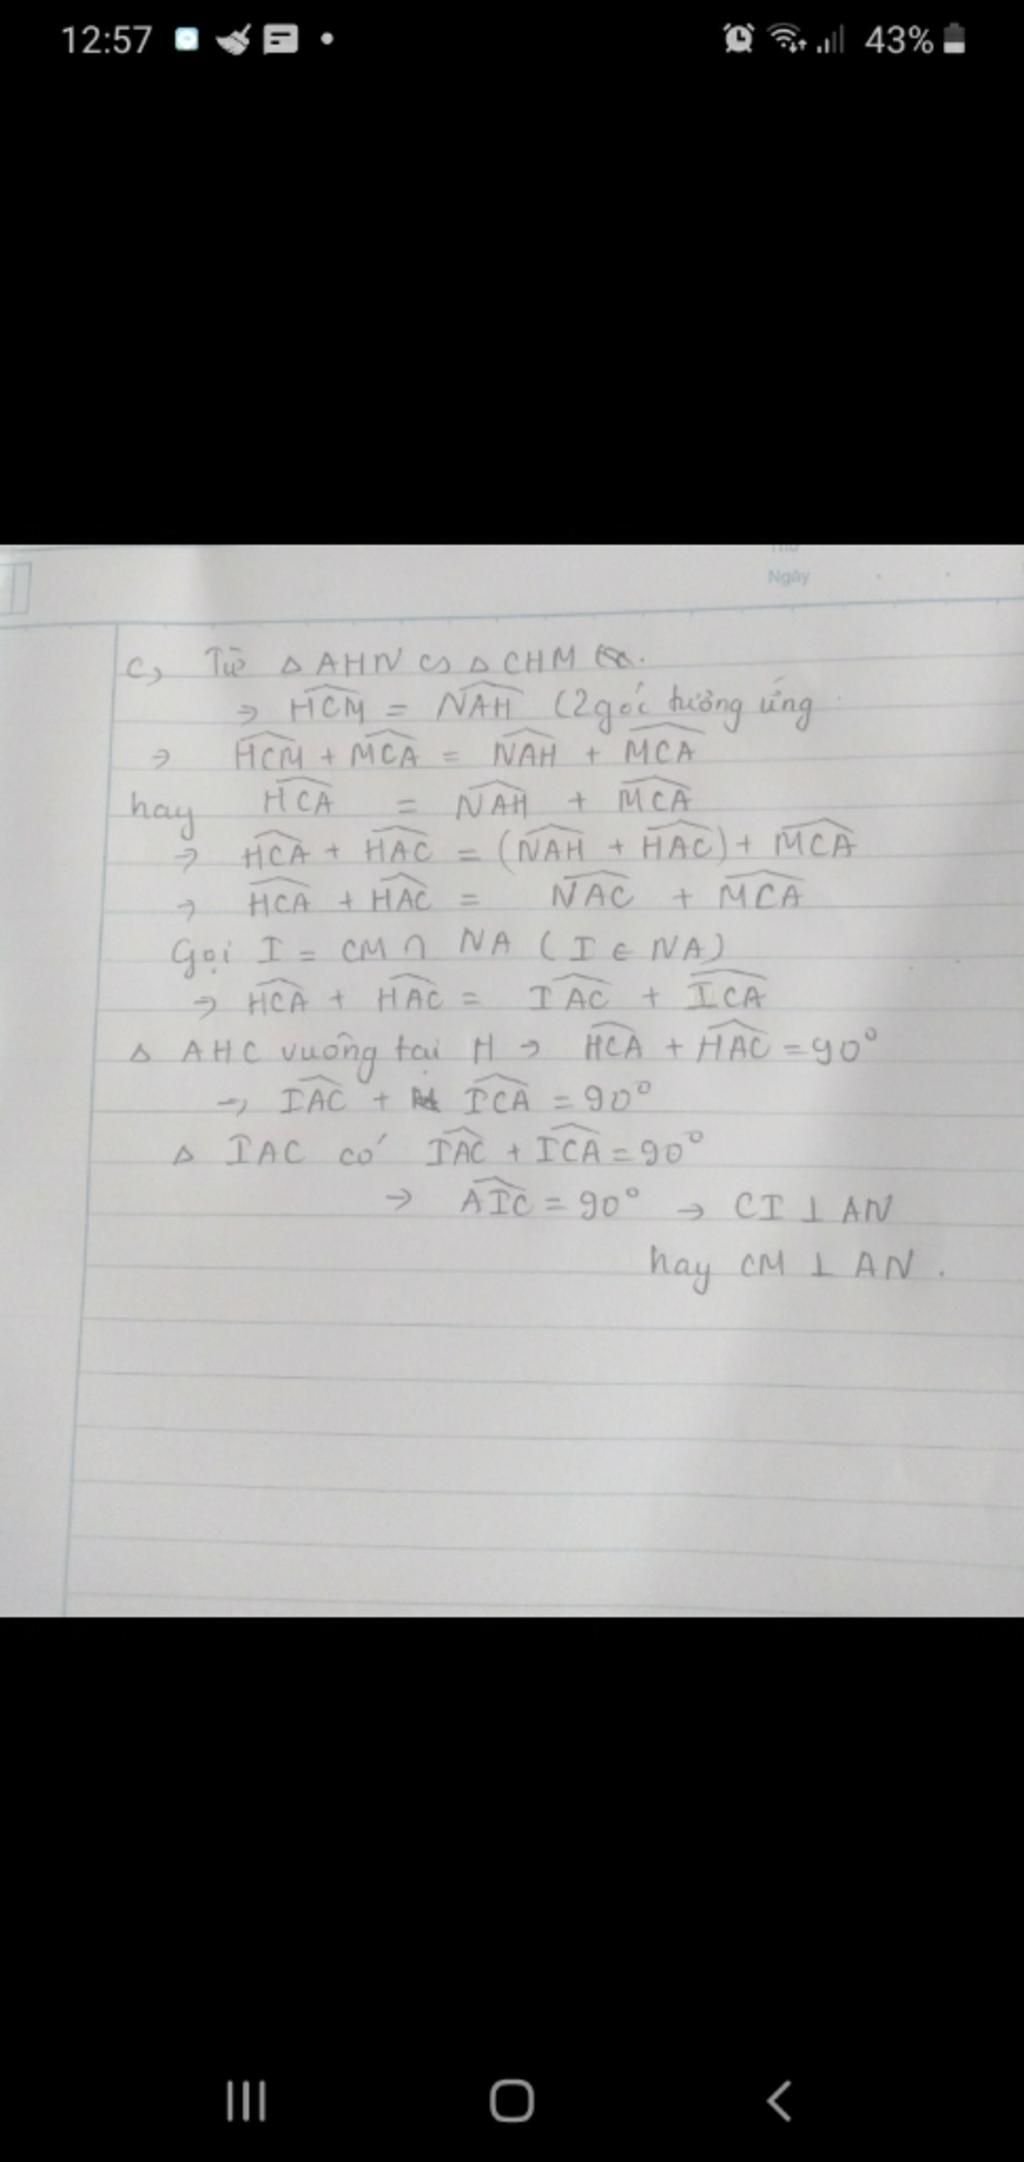 12:57 43%
Thứ
Ngày
c, Từ Δ AHN ∽ Δ CHM
→ \widehat{HCM} = \widehat{NAH} (2 góc tưởng ứng
→ \widehat{HCM} + \widehat{MCA} = \widehat{NAH} + \widehat{MCA}
hay \widehat{HCA} = \widehat{NAH} + \widehat{MCA}
→ \widehat{HCA} + \widehat{HAC} = (\widehat{NAH} + \widehat{HAC}) + \widehat{MCA}
→ \widehat{HCA} + \widehat{HAC} = \widehat{NAC} + \widehat{MCA}
Gọi I = CM ∩ NA (I ∈ NA)
→ \widehat{HCA} + \widehat{HAC} = \widehat{IAC} + \widehat{ICA}
Δ AHC vuông tại H → \widehat{HCA} + \widehat{HAC} = 90°
→ \widehat{IAC} + \widehat{ICA} = 90°
Δ IAC có \widehat{IAC} + \widehat{ICA} = 90°
→ \widehat{AIC} = 90° → CI ⊥ AN
hay CM ⊥ AN.